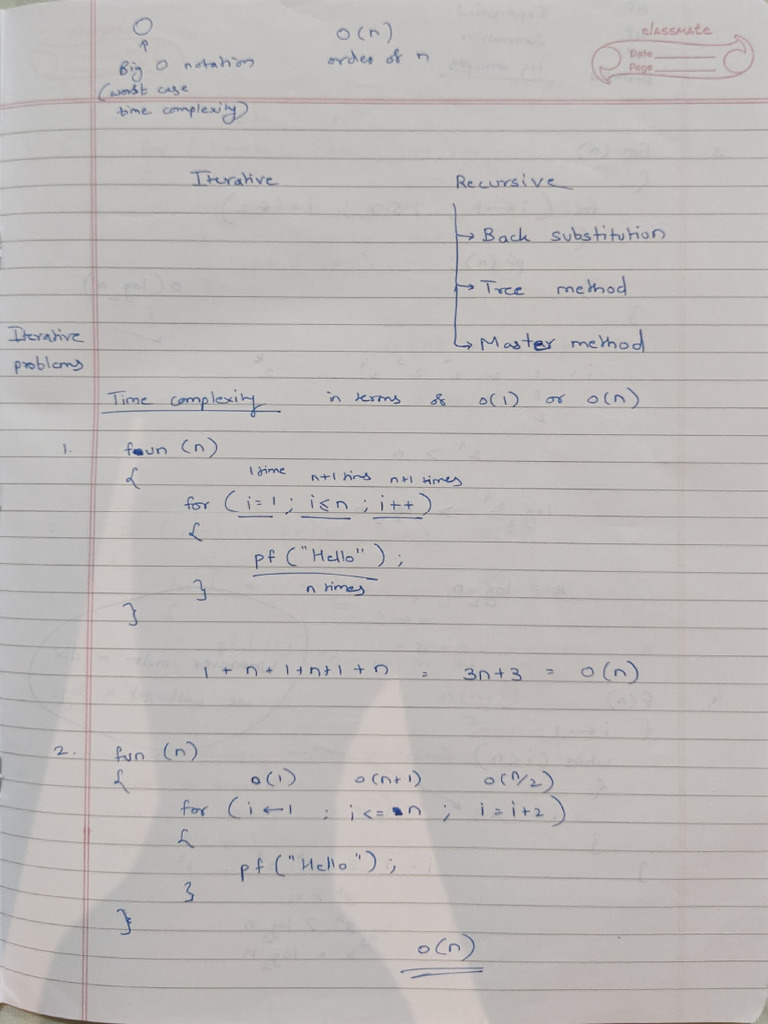 O O(n) classmate
↑ order of n Date
Big O notation Page
(worst case
time complexity)
Iterative Recursive
→ Back substitution
→ Tree method
Iterative
problems
→ Master method
Time complexity in terms of O(1) or O(n)
1. fun (n)
{ 1 time n+1 tims n+1 times
for (i=1 ; i≤n ; i++)
{
pf ("Hello") ;
} n times
}
1 + n + 1 + n + 1 + n = 3n+3 = O(n)
2. fun (n)
{ O(1) O(n+1) O(n/2)
for (i ← 1 ; i <= n ; i = i+2)
{
pf ("Hello");
}
}
O(n)